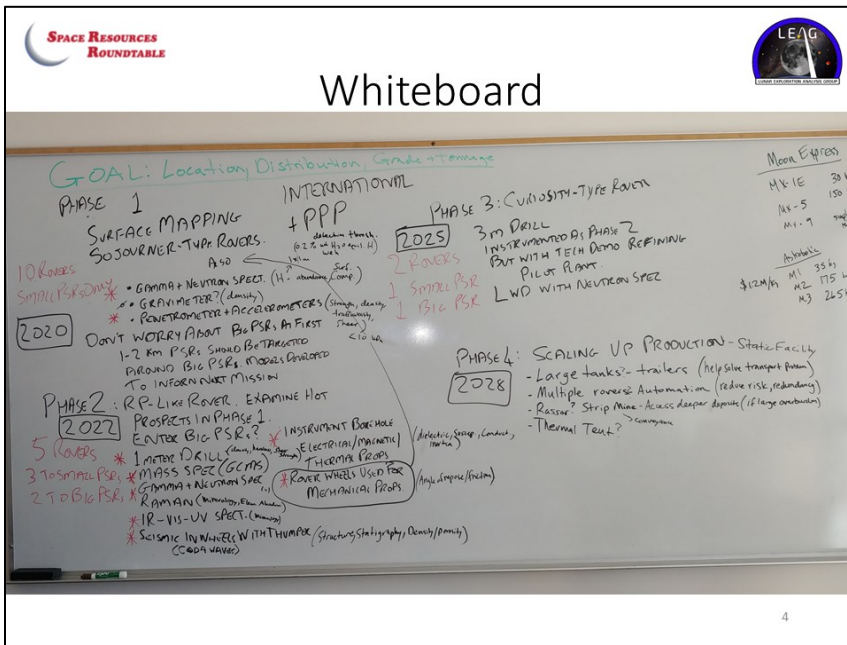 SPACE RESOURCES
ROUNDTABLE
LEAG
LUNAR EXPLORATION ANALYSIS GROUP
Whiteboard
GOAL: Location, Distribution, Grade + Tonnage
PHASE 1
SURFACE MAPPING
SOJOURNER-TYPE ROVERS.
INTERNATIONAL
+ PPP
detection thresh.
1x1m
10 ROVERS
SMALL PSRs ONLY
2020
* • GAMMA + NEUTRON SPECT. (H-abundance, Surf. Comp.)
• GRAVIMETER? (density)
* • PENETROMETER + ACCELEROMETERS (Strength, density, trafficability, shear)
DON'T WORRY ABOUT BIG PSRs AT FIRST
1-2 KM PSRs SHOULD BE TARGETED
AROUND BIG PSRs. MODELS DEVELOPED
TO INFORM NEXT MISSION
PHASE 2: RP-LIKE ROVER. EXAMINE HOT
2022
PROSPECTS IN PHASE 1.
ENTER BIG PSRs?
5 ROVERS
3 TO SMALL PSRs
2 TO BIG PSRs
* 1 METER DRILL
* MASS SPEC (GCMS)
* GAMMA + NEUTRON SPEC
* RAMAN
* IR-VIS-UV SPECT. (Mineralogy)
* SEISMIC IN WHEELS WITH THUMPER (Structure, Stratigraphy, Density/Porosity)
(CODA WAVES)
* INSTRUMENT BOREHOLE
ELECTRICAL/MAGNETIC/
THERMAL PROPS
* ROVER WHEELS USED FOR
MECHANICAL PROPS. (Angle of repose/friction)
PHASE 3: CURIOSITY-TYPE ROVER
2025
2 ROVERS
1 SMALL PSR
1 BIG PSR
3m DRILL
INSTRUMENTED AS PHASE 2
BUT WITH TECH DEMO REFINING
PILOT PLANT.
LWD WITH NEUTRON SPEC
PHASE 4: SCALING UP PRODUCTION - Static Facility
2028
- Large tanks? - trailers (help solve transport problem)
- Multiple rovers? Automation (reduce risk, redundancy)
- Rassor? Strip Mine - Access deeper deposits (if large overburden)
- Thermal Tent?
Moon Express
MX-1E 30
MX-5 150
MX-9
Astrobotic
$1.2M/kg M1 35 kg
M2 175
M3 265
4